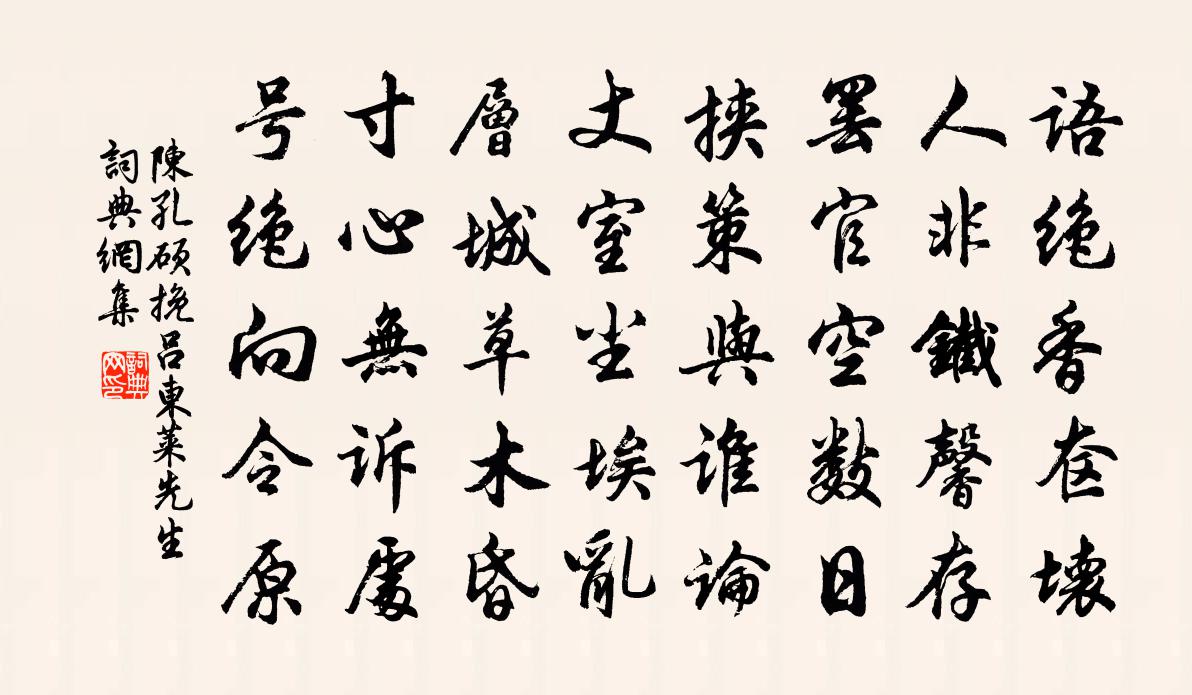 语绝香奁壞
人非鐵馨存
罢官空數日
挟策與谁論
丈室尘埃亂
層城草木昏
寸心無诉處
号绝向令原
陳孔硕挽吕東莱先生
詞典網集
詞典网印